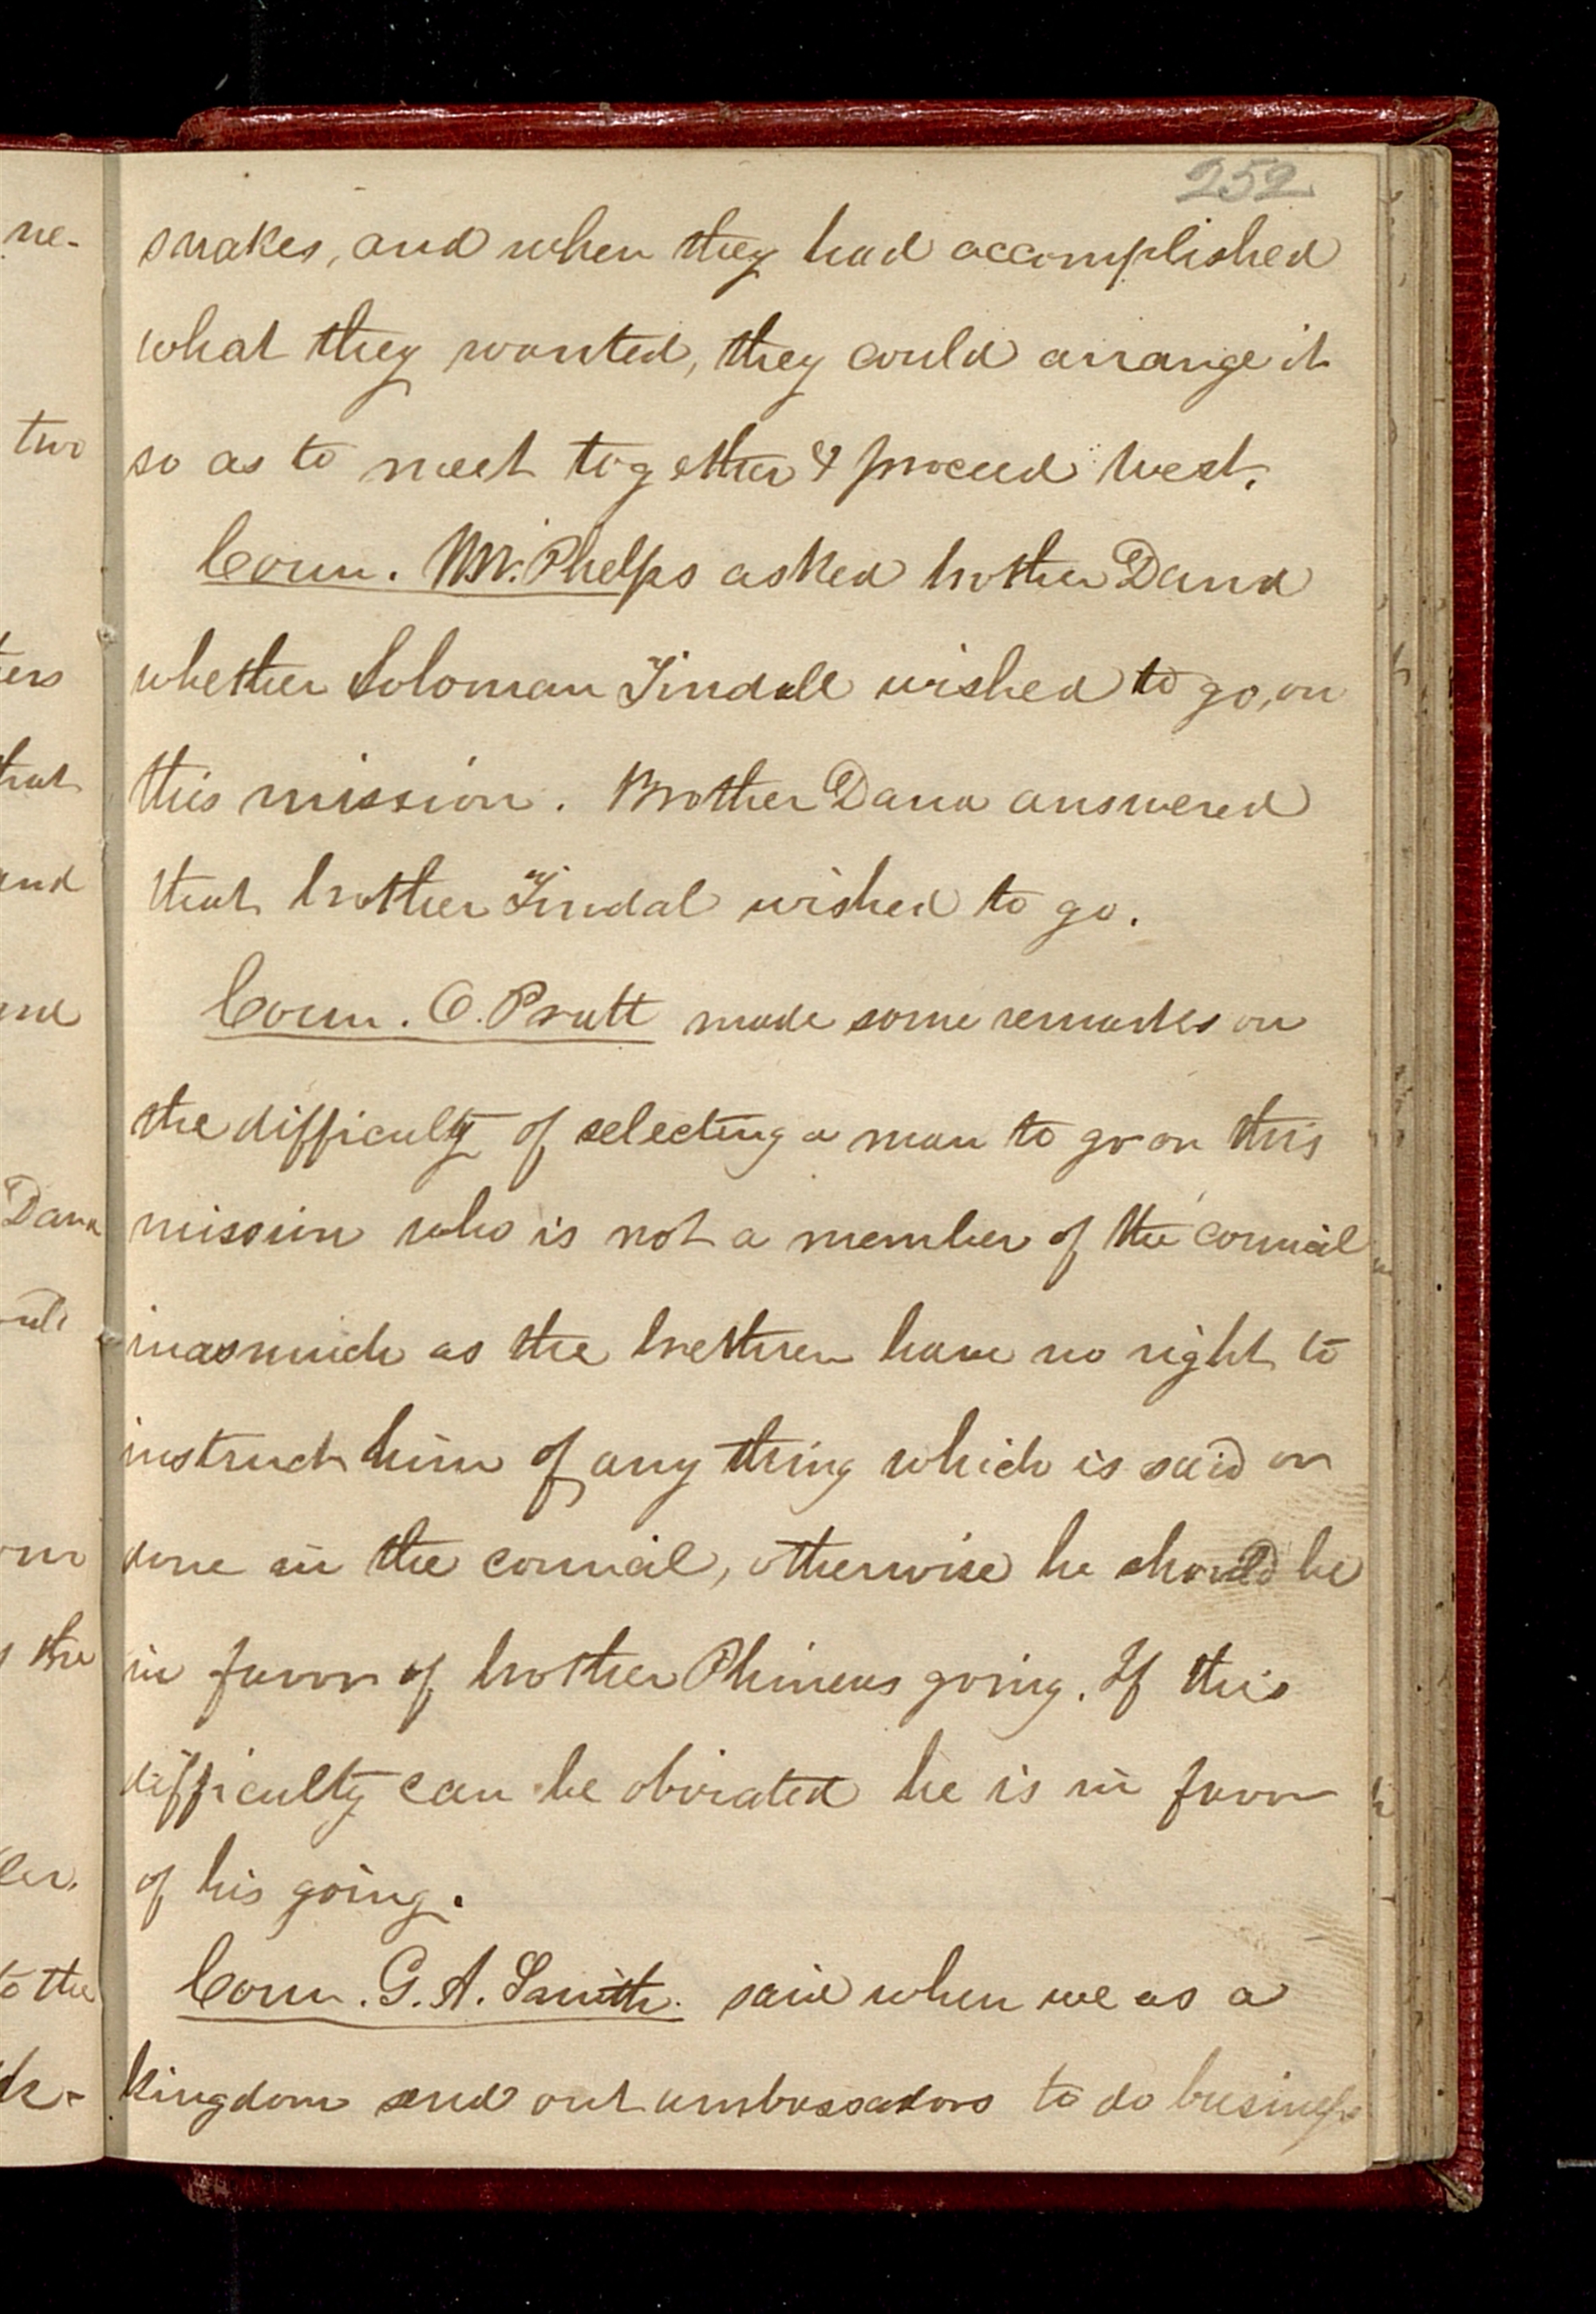 252
snakes, and when they had accomplished
what they wanted, they could arrange it
so as to meet together & proceed west.
Coun. W. W. Phelps asked brother Dana
whether Soloman Tindall wished to go, on
this mission. Brother Dana answered
that brother Tindal wished to go.
Coun. O. Pratt made some remarks on
the difficulty of selecting a man to go on this
mission who is not a member of the council
inasmuch as the brethren have no right to
instruct him of any thing which is said or
done in the council, otherwise he should be
in favor of brother Phineas going. If this
difficulty can be obviated he is in favor
of his going.
Coun. G. A. Smith. said when we as a
kingdom send out ambassadors to do business
ne-
two
ters
that
and
and
Dana
the
ler.
to the